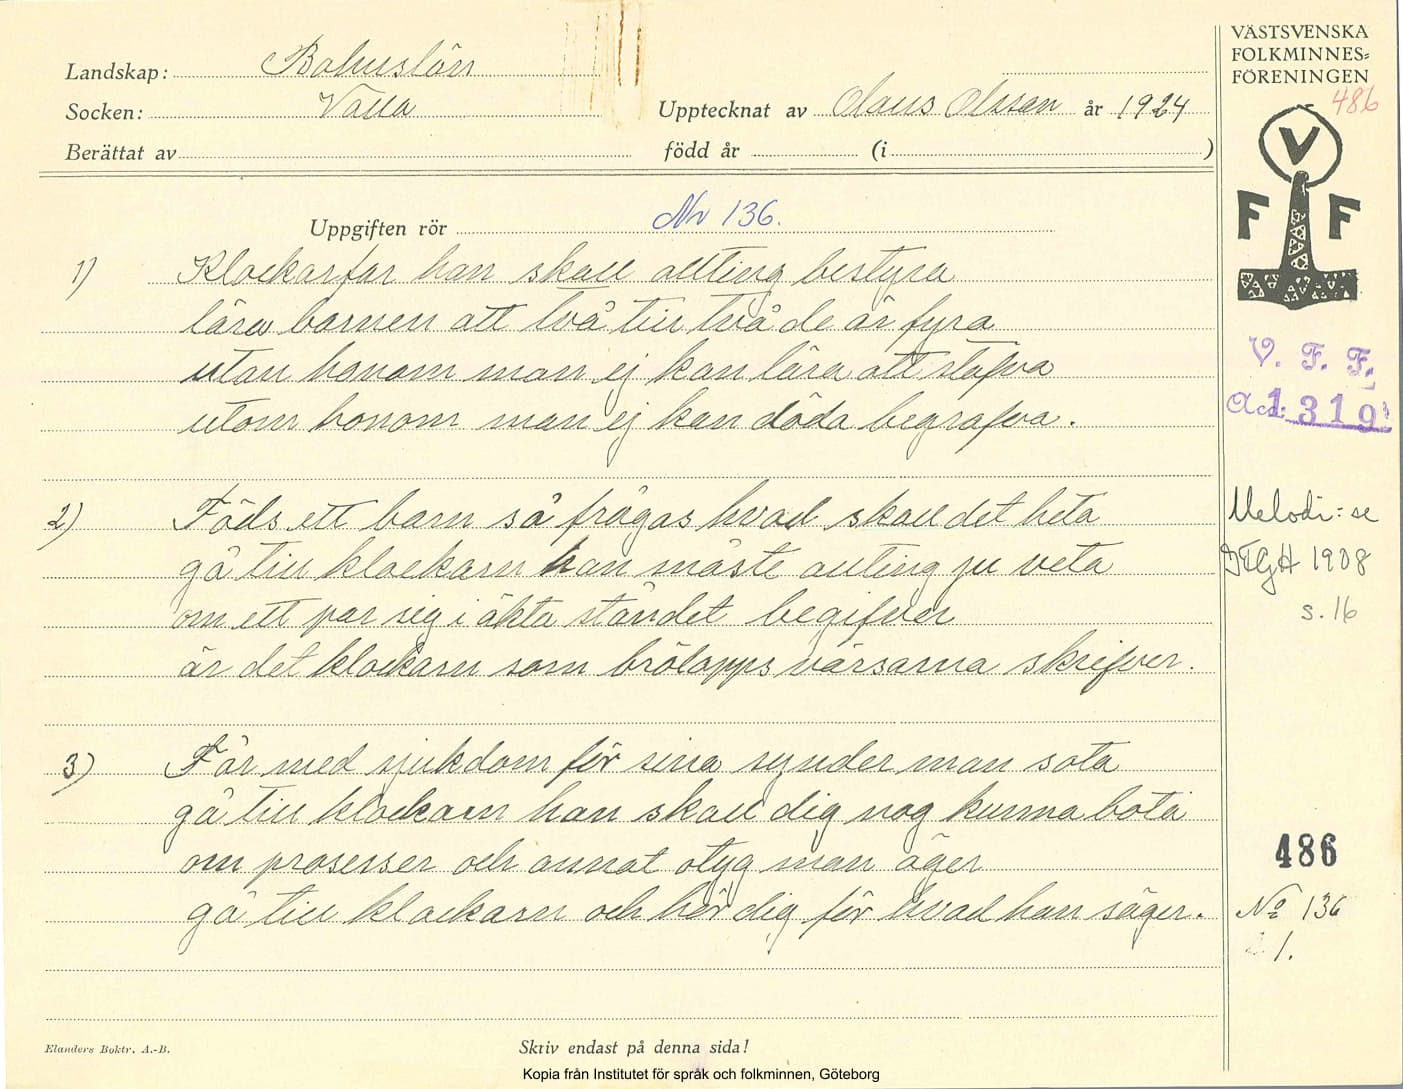 Landskap: Bohuslän
Socken: Valla
Upptecknat av Olaus Olsson år 1924
Berättat av
född år (i )
Uppgiften rör Nr 136.
1) Klockarfar han skall allting bestyra
lära barnen att två till två de är fyra
utan honom man ej kan lära att stafva
utom honom man ej kan döda begrafva.
2) Föds ett barn så frågas hvad skall det heta
gå till klockarn han måste allting ju veta
om ett par sig i äkta ståndet begifver
är det klockarn som brölopps värsarna skrifver.
3) Får med sjukdom för sina synder man sota
gå till klockarn han skall dig nog kunna bota
om prosesser och annat otyg man äger
gå till klockarn och hör dig för hvad han säger.
Elanders Boktr. A.-B.
Skriv endast på denna sida!
Kopia från Institutet för språk och folkminnen, Göteborg
VÄSTSVENSKA
FOLKMINNES=
FÖRENINGEN
486
V
F F
V. F. F.
Acc: 1319
Melodi: se
1908
s. 16
486
No 136
1.